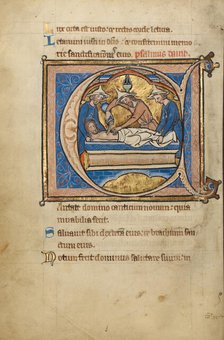 Lux orta est iusto : et rectis corde leticia.
Letamini iusti in dño : et confitemini memo
rie sanctificationis eius. psalmus david.
C
Antate domino canticum novum : quia
mirabilia fecit.
Saluauit sibi dextera eius : et brachium san
ctum eius.
Notum fecit dominus salutare suum : in